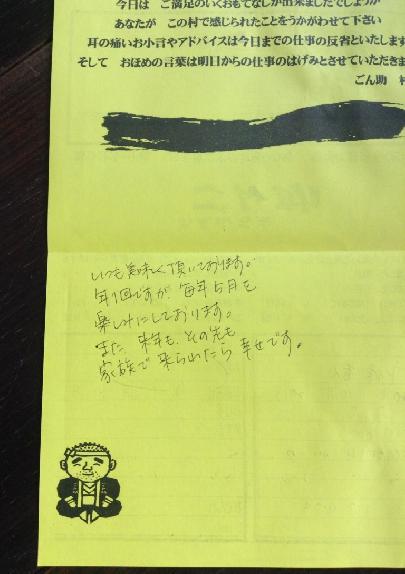 今日は　ご満足のいくおもてなしが出来ましたでしょうか
あなたが　この村で感じられたことをうかがわせて下さい
耳の痛いお小言やアドバイスは今日までの仕事の反省といたします
そして　おほめの言葉は明日からの仕事のはげみとさせていただきま
ごん助　村
いつも美味しく頂いております。
年1回ですが、毎年5月を
楽しみにしております。
また、来年も、その先も
家族で来られたら幸せです。